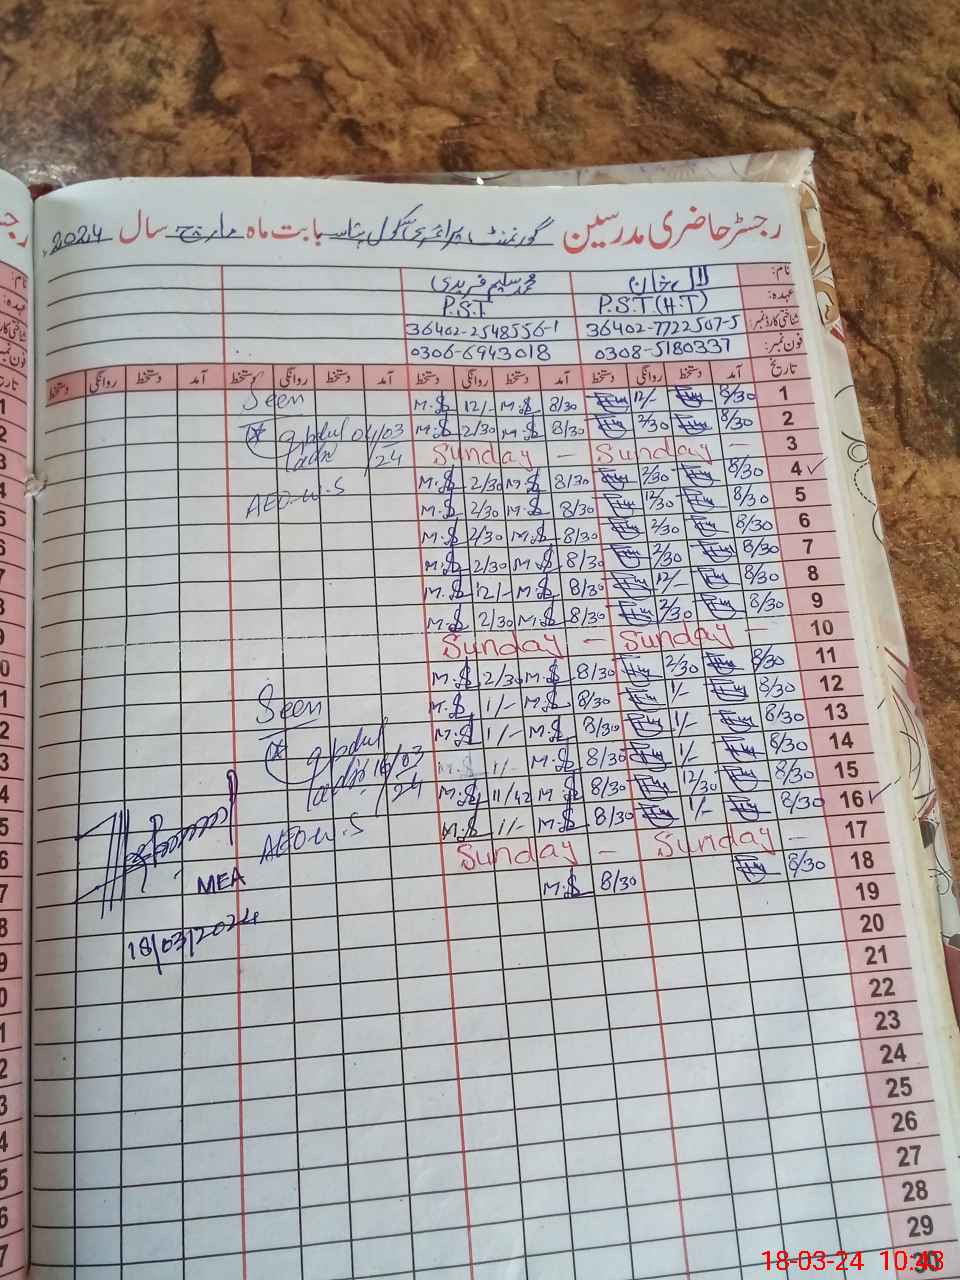 رجسٹر حاضری مدرسین گورنمنٹ پرائمری سکول بابت ماہ مارچ سال 2024
نام: لال خان محمد سلیم فریدی
عہدہ: P.S.T(H.T) P.S.T
شناختی کارڈ نمبر: 36402-7722507-5 36402-2548556-1
فون نمبر: 0308-5180337 0306-6943018
تاریخ آمد دستخط روانگی دستخط آمد دستخط روانگی دستخط آمد دستخط روانگی دستخط آمد دستخط روانگی دستخط
1 8/30 12/- 8/30 M.S 12/- M.S Seen
2 8/30 2/30 8/30 M.S 2/30 M.S 04/03/24
3 Sunday - Sunday -
4 ✓ 8/30 2/30 8/30 M.S 2/30 M.S AEO-W.S
5 8/30 12/30 8/30 M.S 2/30 M.S
6 8/30 2/30 8/30 M.S 2/30 M.S
7 8/30 2/30 8/30 M.S 2/30 M.S
8 8/30 12/- 8/30 M.S 12/- M.S
9 8/30 2/30 8/30 M.S 2/30 M.S
10 Sunday - Sunday -
11 8/30 2/30 8/30 M.S 2/30 M.S
12 8/30 1/- 8/30 M.S 1/- M.S Seen
13 8/30 1/- 8/30 M.S 1/- M.S
14 8/30 1/- 8/30 M.S 1/- M.S 16/03/24
15 8/30 12/30 8/30 M.S 11/42 M.S
16 ✓ 8/30 1/- 8/30 M.S 1/- M.S AEO-W.S
17 Sunday - Sunday -
18 8/30 8/30 M.S MEA
19
18/03/2024
20
21
22
23
24
25
26
27
28
29
30
18-03-24 10:43